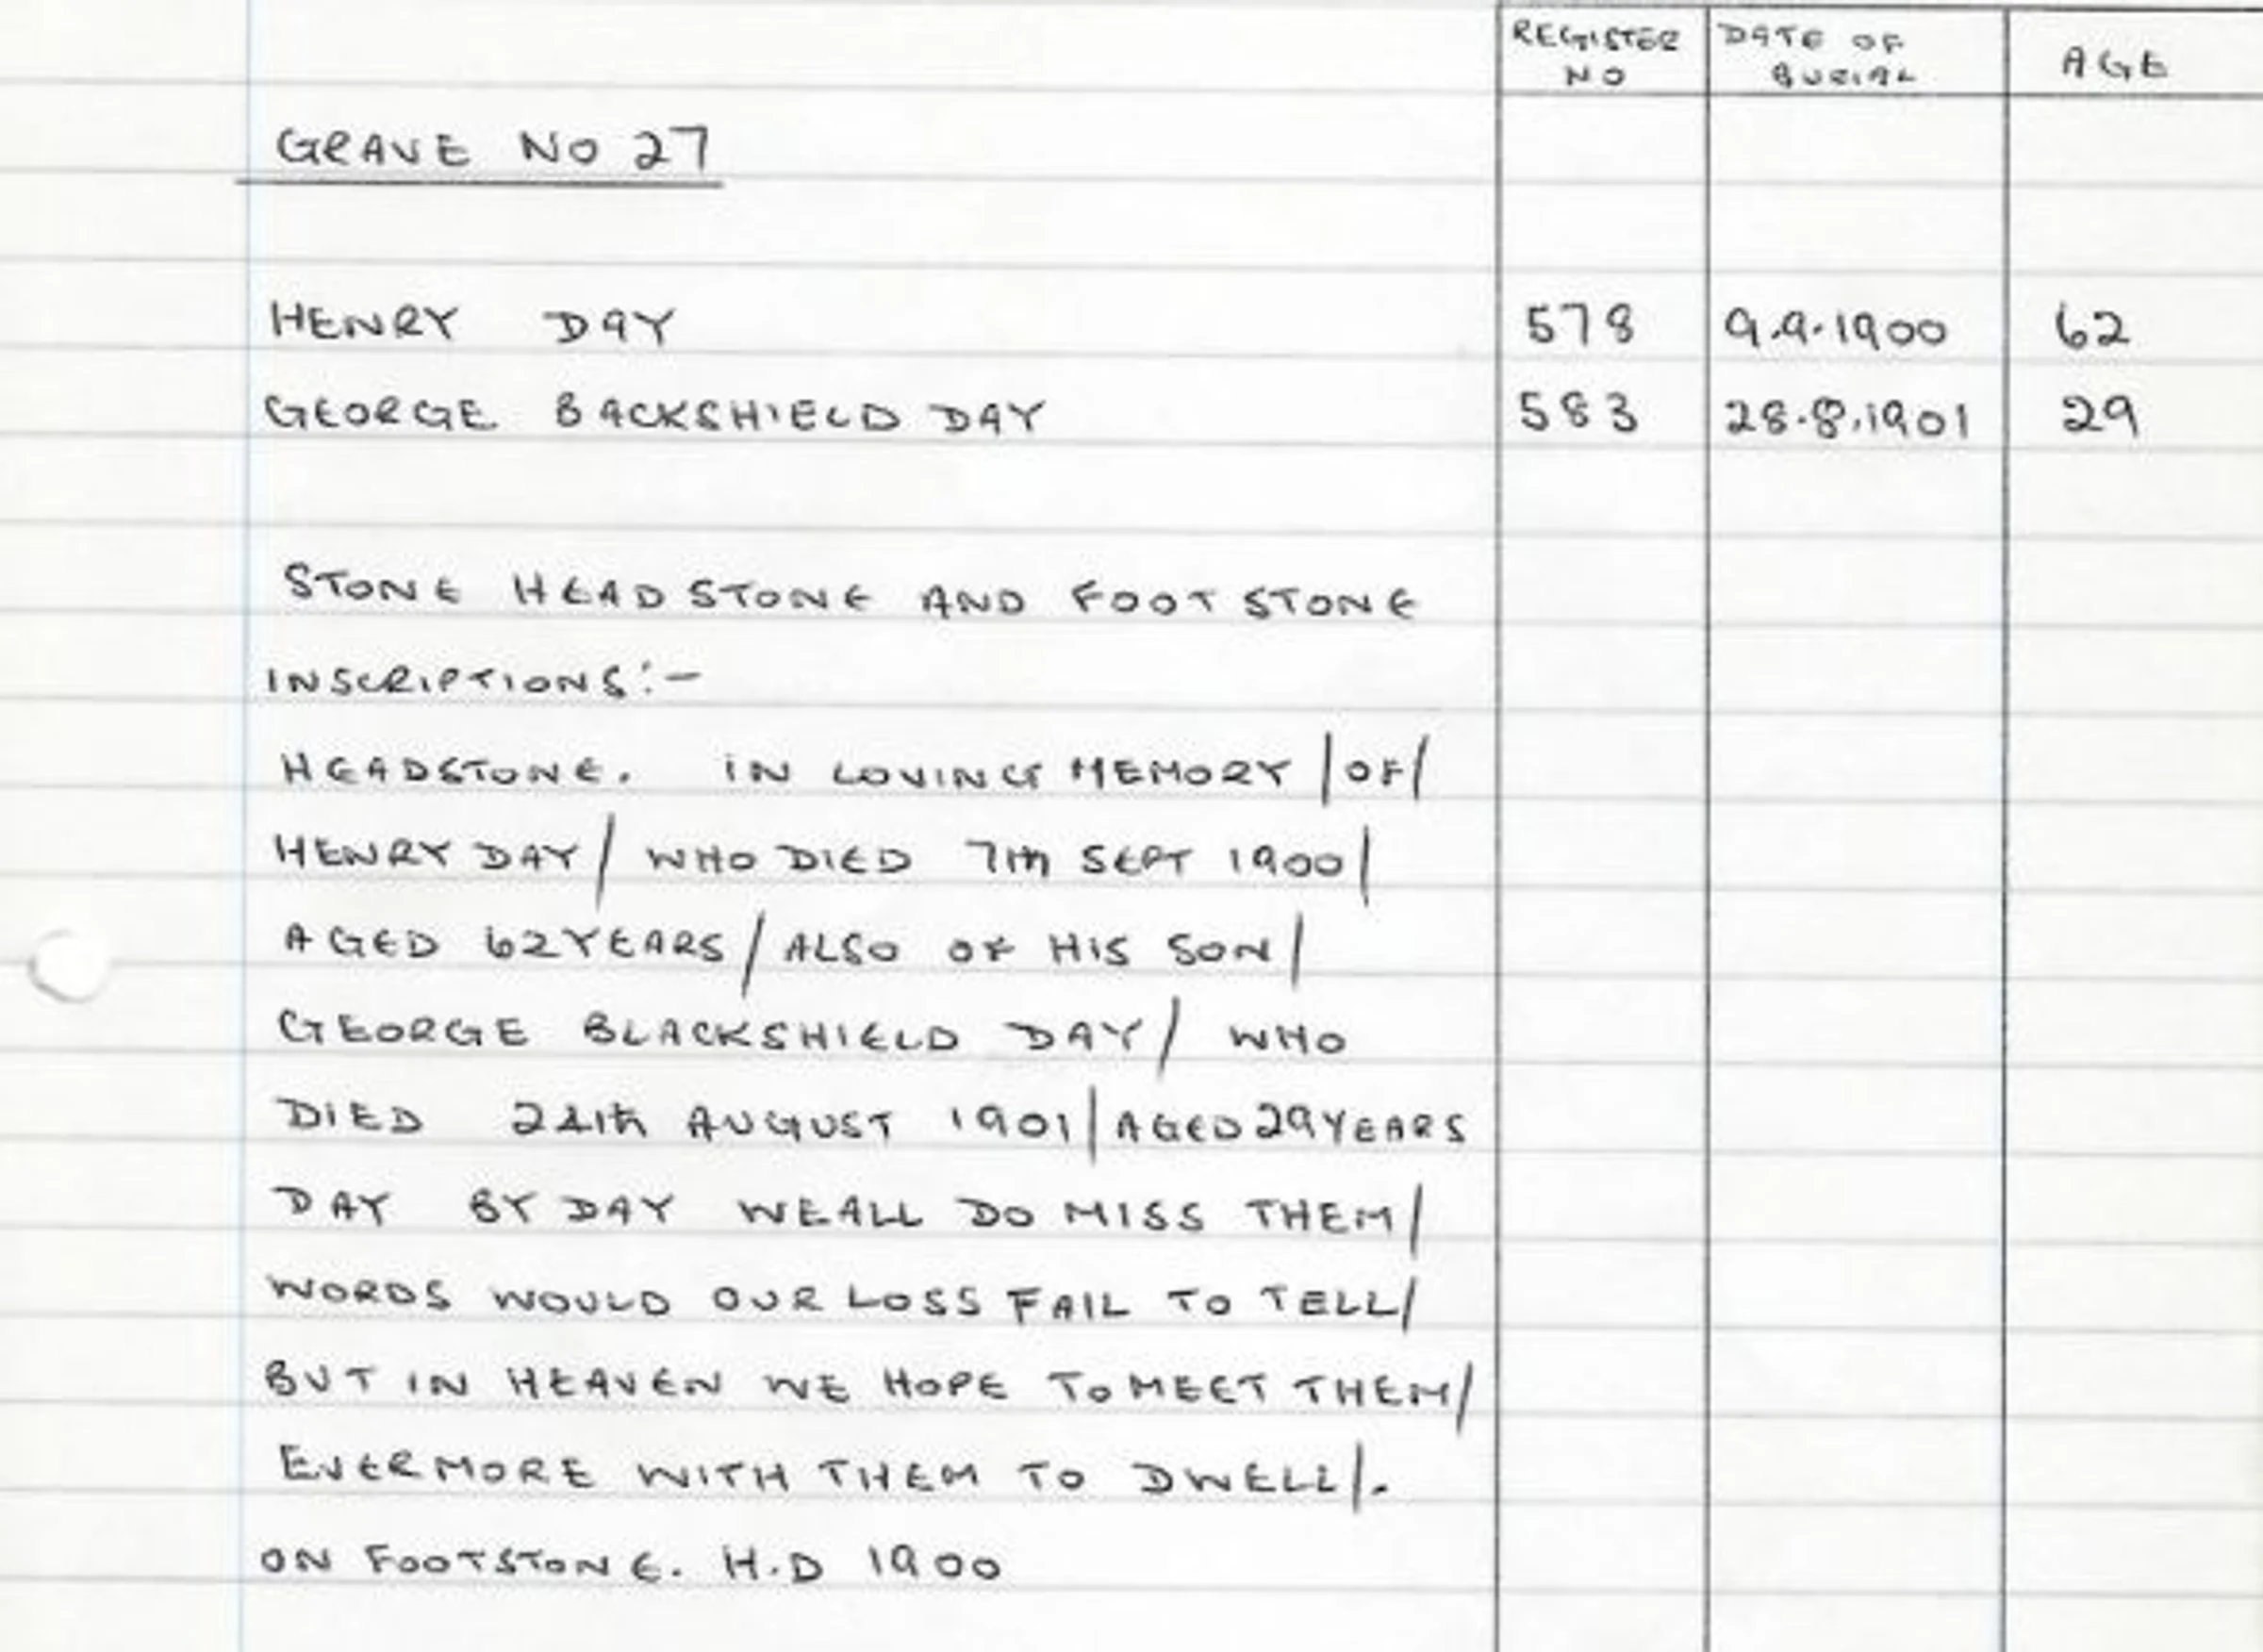 REGISTER NO DATE OF BURIAL AGE
GRAVE NO 27
HENRY DAY 578 9.9.1900 62
GEORGE BACKSHIELD DAY 583 28.8.1901 29
STONE HEADSTONE AND FOOTSTONE
INSCRIPTIONS:-
HEADSTONE. IN LOVING MEMORY /OF/
HENRY DAY/ WHO DIED 7th SEPT 1900/
AGED 62 YEARS/ ALSO OF HIS SON/
GEORGE BLACKSHIELD DAY/ WHO
DIED 24th AUGUST 1901/ AGED 29 YEARS
DAY BY DAY WE ALL DO MISS THEM/
WORDS WOULD OUR LOSS FAIL TO TELL/
BUT IN HEAVEN WE HOPE TO MEET THEM/
EVERMORE WITH THEM TO DWELL/.
ON FOOTSTONE. H.D 1900